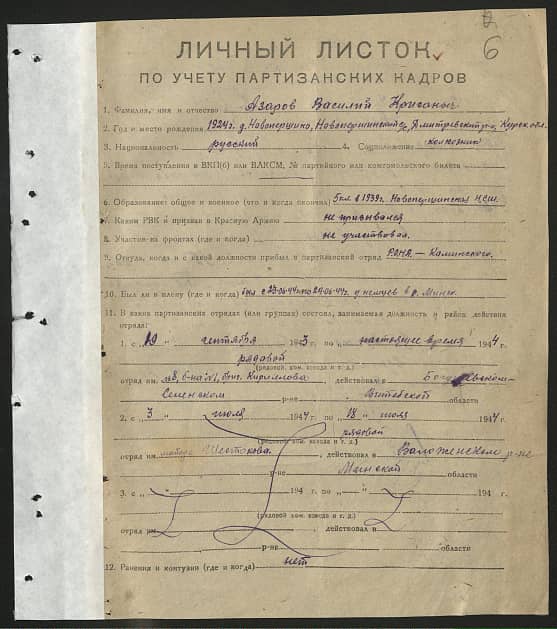 6
ЛИЧНЫЙ ЛИСТОК
ПО УЧЕТУ ПАРТИЗАНСКИХ КАДРОВ
1. Фамилия, имя и отчество Азаров Василий
2. Год и место рождения 1924 г. д. Новопершино, Новопершинский с/с, Дмитриевский р-н, Курск. обл.
3. Национальность русский 4. Соцположение колхозник
5. Время поступления в ВКП(б) или ВЛКСМ, № партийного или комсомольского билета
6. Образование: общее и военное (что и когда окончил) 5 кл в 1939 г. Новопершинская НСШ.
7. Каким РВК и призван в Красную Армию не призывался
8. Участие на фронтах (где и когда) не участвовал.
9. Откуда, когда и с какой должности прибыл в партизанский отряд РОНА — Каминского.
10. Был ли в плену (где и когда) был с 23.06.44 по 29.06.44 г. у немцев в г. Минск.
11. В каких партизанских отрядах (или группах) состоял, занимаемая должность и район действия
отряда:
1. с „ 19 „ сентября 1943 г. по „ настоящее время 1944
рядовой
(рядовой, ком. взвода и т. д.)
отряд им. №8, б-на №1, бриг. Кириллова , действовал в
Сенненском р-не Витебской области
2. с „ 3 „ июля 1944 г. по „ 18 „ июля 1944
рядовой
(рядовой, ком. взвода и т. д.)
отряд им. майора Шестакова. , действовал в Воложенском р-не
р-не Минской области
3. с „ „ 194 г. по „ „ 194 г.
(рядовой, ком. взвода и т. д.)
отряд им. , действовал в
р-не области
12. Ранения и контузии (где и когда) нет